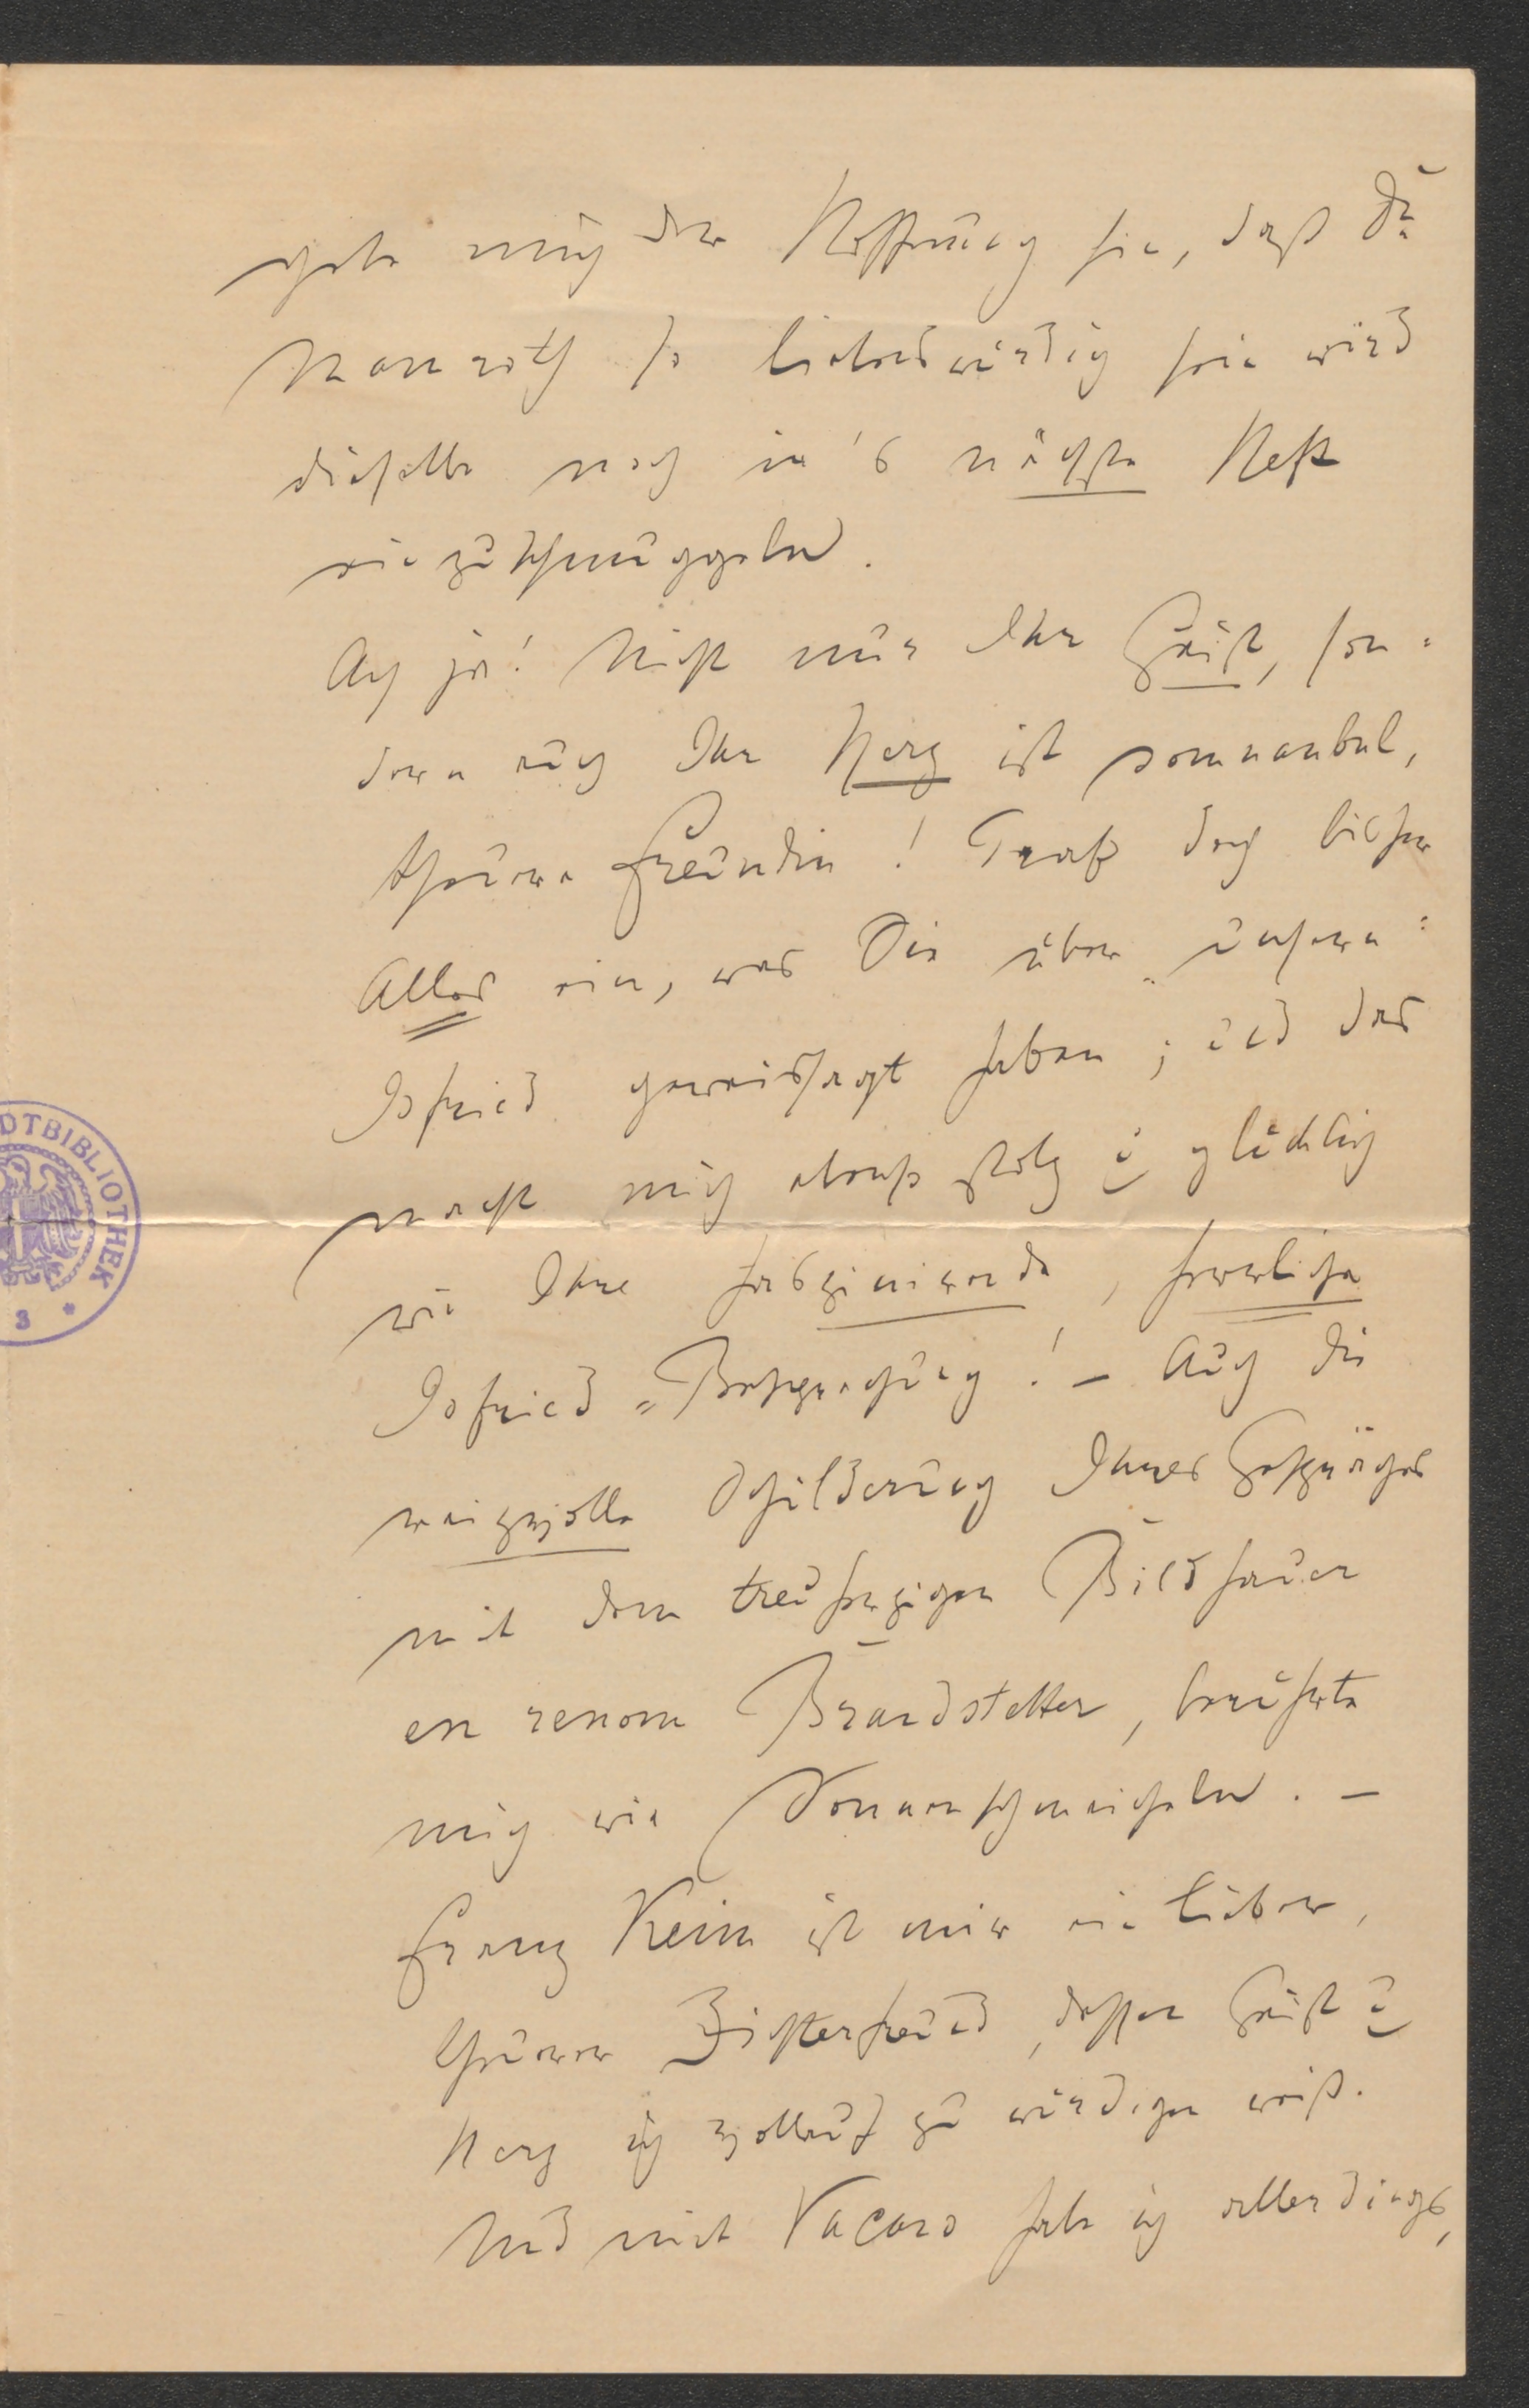 gebe mich der Hoffnung hin, daß Dr
Nemeroth so liebenswürdig sein wird
dieselbe noch in's nächste Heft
einzuschmuggeln.
Ach ja! Nicht nur Ihr Geist, son-
dern auch Ihr Herz ist somnanbul,
theuere Freundin! Traf doch bisher
Alles ein, was Sie über „unseren"
Isfried geweissagt haben; und das
macht mich ebenso stolz u glücklich
wie Ihre faszinirende, herrliche
Isfried-Besprechung! – Auch die
reizvolle Schilderung Ihres Gespräches
mit dem treuherzigen Bildhauer
en renom Brandstetter, berührte
mich wie Sonnenschmeicheln. –
Franz Keim ist mir ein lieber,
theurer Dichterfreund, dessen Geist u
Herz ich vollauf zu würdigen weiß.
Und mit Vacano habe ich allerdings,
STADTBIBLIOTHEK
3 *